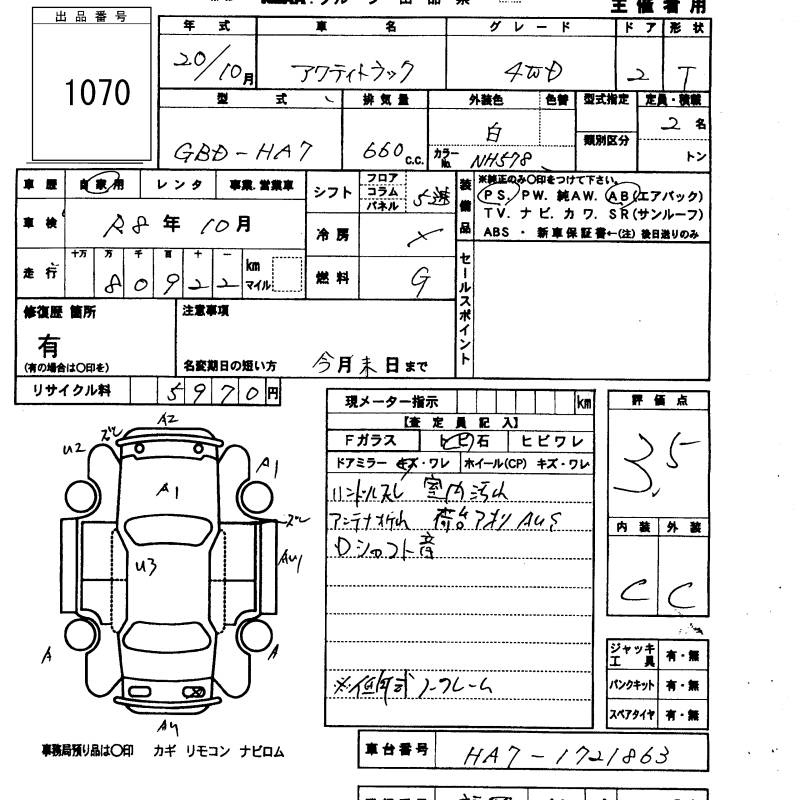 主催者用
出品番号
1070
年式 車名 グレード ドア 形状
20/10月 アクティトラック 4WD 2 T
型式 排気量 外装色 色替 型式指定 定員・積載
GBD-HA7 660c.c. 白 カラーNo. NH578 類別区分 2名
トン
車歴 自家用 レンタ 事業、営業車
シフト フロア コラム パネル 5速
装備品 ※純正のみ○印をつけて下さい。
PS. PW. 純AW. AB(エアバック)
TV. ナビ. カワ. SR(サンルーフ)
ABS ・ 新車保証書←(注) 後日送りのみ
車検 R8年10月
冷房 ×
走行 十万 万 千 百 十 一
80922 km マイル
燃料 G
セールスポイント
修復歴 箇所
有
(有の場合は○印を)
注意事項
名変期日の短い方 今月末日まで
リサイクル料 5970円
現メーター指示 km
【査定員記入】
Fガラス トビ石 ヒビワレ
ドアミラー キズ・ワレ ホイール(CP) キズ・ワレ
ハンドルスレ 室内汚れ
アンテナオレ 荷台アオリ AUS
Dシャフト音
ノークレーム
評価点
3.5
内装 外装
C C
ジャッキ工具 有・無
パンクキット 有・無
スペアタイヤ 有・無
A2
ズレ
U2
A1
A1
ズレ
U3
AU1
A
A
事務局預り品は○印 カギ リモコン ナビロム
車台番号 HA7-1721863